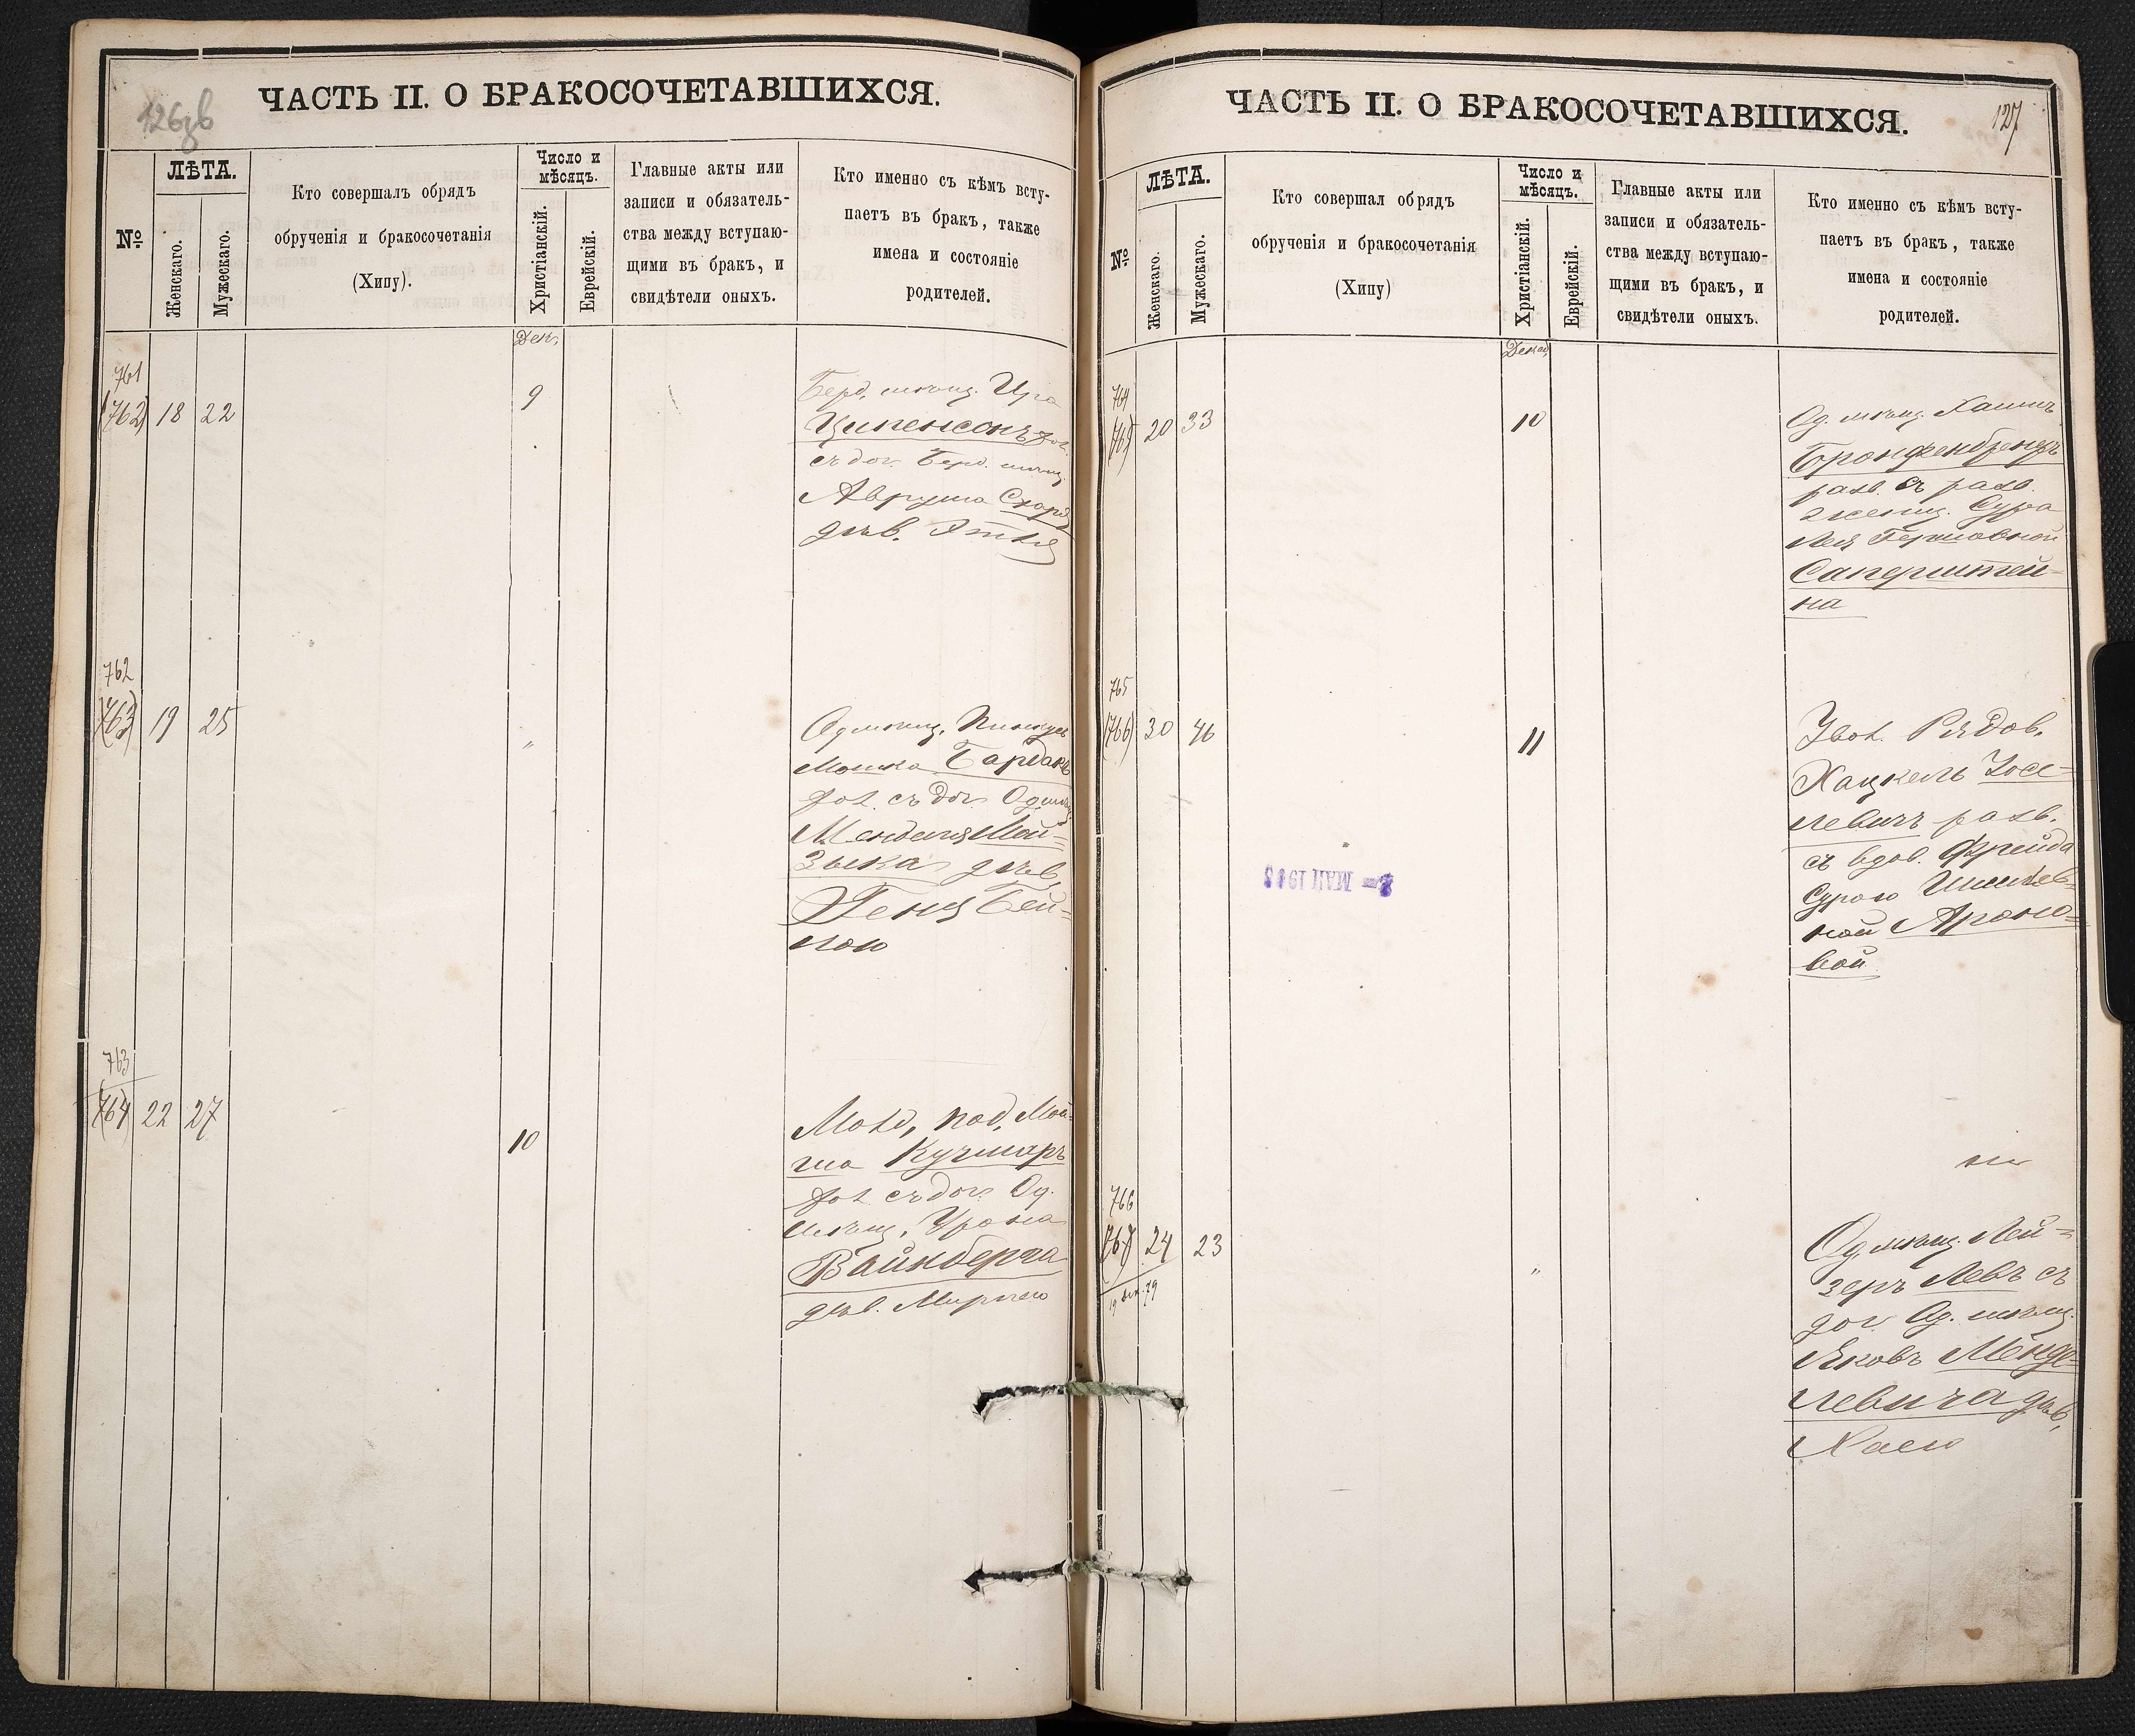 126об
ЧАСТЬ II. О БРАКОСОЧЕТАВШИХСЯ.
№
ЛѢТА.
Женскаго.
Мужескаго.
Кто совершалъ обрядъ
обрученія и бракосочетанія
(Хипу).
Число и
мѣсяцъ.
Христіанскій.
Еврейскій.
Главные акты или
записи и обязатель-
ства между вступаю-
щими въ бракъ, и
свидѣтели оныхъ.
Кто именно съ кѣмъ всту-
паетъ въ бракъ, также
имена и состояніе
родителей.
Дек.
761
(762) 18 22
9
Берд. мѣщ.
Ципенсонъ хол.
съ доч. Берд. мѣщ.
Аврума
дѣв.
762
(763) 19 25
"
Од мѣщ. Пинкусъ
Мошка Бардакъ
хол. съ доч. Од мѣщ
Менделя Мей-
зыка дѣв.
Геня Бей-
лою
763
(764) 22 27
10
Мой-
ша Кушниръ
хол. съ доч. Од.
мѣщ.
Вайнберга
дѣв. Мирлею
127
ЧАСТЬ II. О БРАКОСОЧЕТАВШИХСЯ.
№
ЛѢТА.
Женскаго.
Мужескаго.
Кто совершал обрядъ
обрученія и бракосочетанія
(Хипу)
Число и
мѣсяцъ.
Христіанскій.
Еврейскій.
Главные акты или
записи и обязатель-
ства между вступаю-
щими въ бракъ, и
свидѣтели оныхъ.
Кто именно съ кѣмъ всту-
паетъ въ бракъ, также
имена и состояніе
родителей.
764
(765) 20 33
10
Од. мѣщ. Хаимъ
Бронфенбренеръ
разв. съ разв.
женщ. Сура
Лея Гершовной
Саперштей-
на
765
(766) 30 46
11
Рядов.
Хацкель Іосе-
левичъ разв.
съ вдов. Фрейда
Сурою
ной Ароно-
вой
МАЙ
766
(767) 24 23
"
Од мѣщ. Лей-
зеръ Левъ съ
доч Од. мѣщ.
Яковъ Менде-
левича дѣв.
Хаею